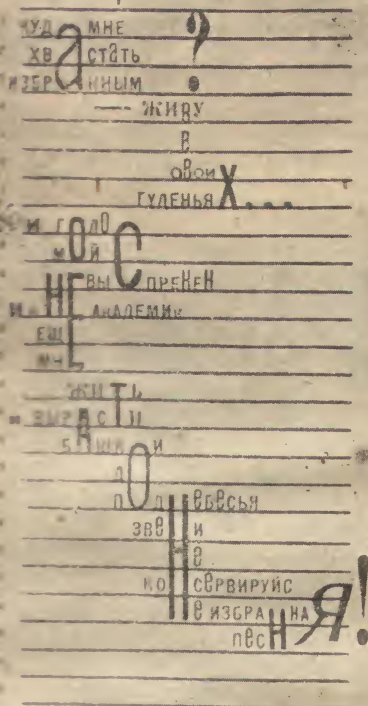 КУДА МНЕ ?
ХВАСТАТЬ
ИЗБРАННЫМ
— ЖИВУ
В
СВОИХ
ГУДЕНЬЯХ...
И ГОЛОС
МОЙ
НЕ ВЫСПРЕНЕН
И Я НЕ АКАДЕМИК
ЕЩЕ
МНЕ
ЖИТЬ
И ВЫРАСТИ
БАШКОЙ
ДО
ПОДНЕБЕСЬЯ
ЗВЕНИ
НЕ
КОНСЕРВИРУЙСЯ
НЕИЗБРАННАЯ
ПЕСНЯ!